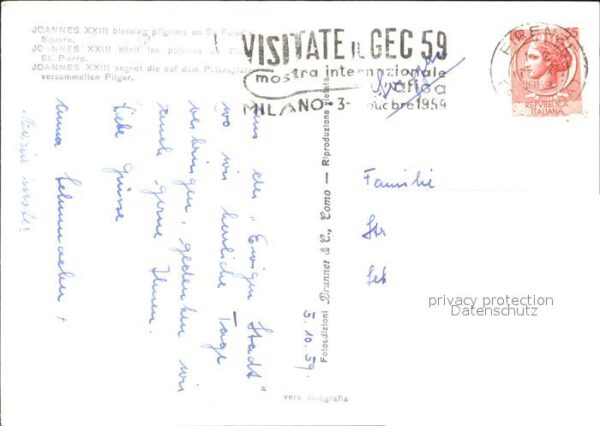 JOANNES XXIII blessing pilgrims on St Peter's
Square.
JOANNES XXIII bénit les pelerins
St. Pierre.
JOANNES XXIII segnet die auf dem Petersplatz
versammelten Pilger.
VISITATE IL GEC 59
mostra internazionale
grafica
MILANO· 3-
ottobre 1959
FIRENZE
REPVBBLICA
ITALIANA
5.10.59.
Aus der „Ewigen Stadt"
wo wir herrliche Tage
verbringen, gedenken wir
gerne Ihnen.
Liebe Grüsse
Anna
Familie
Fotoedizioni Brunner & C., Como — Riproduzione vietata
vera fotografia
privacy protection
Datenschutz